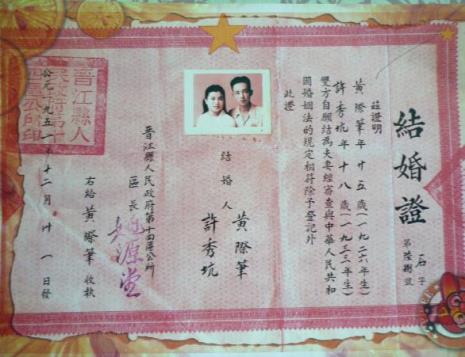 結婚證
字
第 號
茲證明
黃際筆年廿五歲(一九二六年生)
許秀坑年十八歲(一九三三年生)
雙方自願結為夫妻經審查與中華人民共和
國婚姻法的規定相符除予登記外
此證
結婚人
黃際筆
許秀坑
晉江縣人民政府第十四區公所
區長
右給黃際筆收執
公元一九五一年十二月廿一日發
晉江縣人